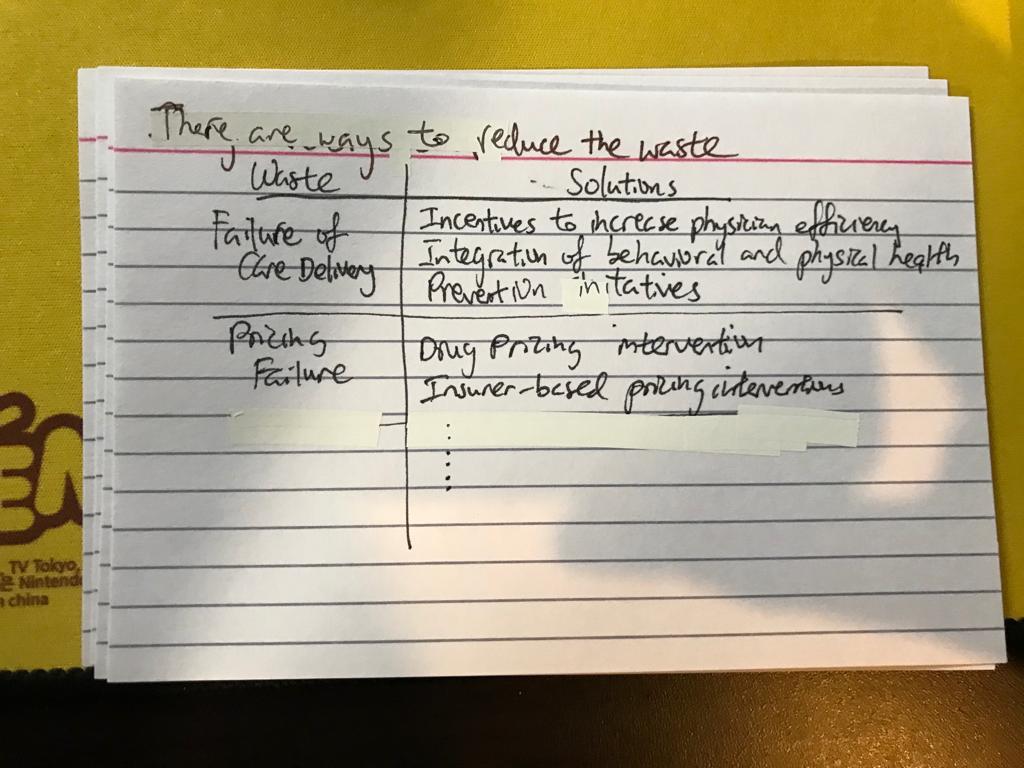 There are ways to reduce the waste
Waste
Solutions
Failure of
Care Delivery
Incentives to increase physician efficiency
Integration of behavioral and physical health
Prevention initatives
Prizing
Failure
Drug Prizing intervention
Insurer-based prizing interventions
TV Tokyo,
Nintendo
china